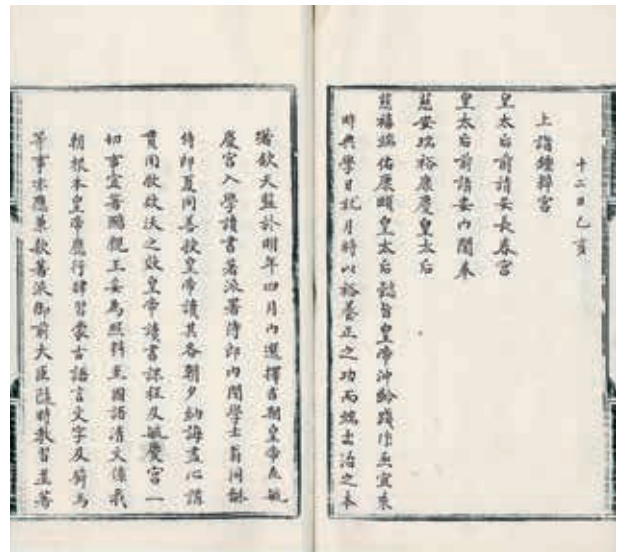 十二日乙亥
上詣鍾粹宮
皇太后前請安長春宮
皇太后前請安內閣奉
慈安端裕康慶皇太后
慈禧端佑康頤皇太后懿旨皇帝沖齡踐阼亟宜乘
時典學日就月將以裕養正之功而端出治之本
著欽天監於明年四月內選擇吉期皇帝在毓
慶宮入學讀書著派署侍郎內閣學士翁同龢
侍郎夏同善授皇帝讀其各朝夕納誨盡心講
貫用收啟沃之效皇帝讀書課程及毓慶宮一
切事宜著醇親王妥為照料至國語清文係我
朝根本皇帝應行肄習蒙古語言文字及騎馬
等事亦應兼敘著派御前大臣隨時教習並著